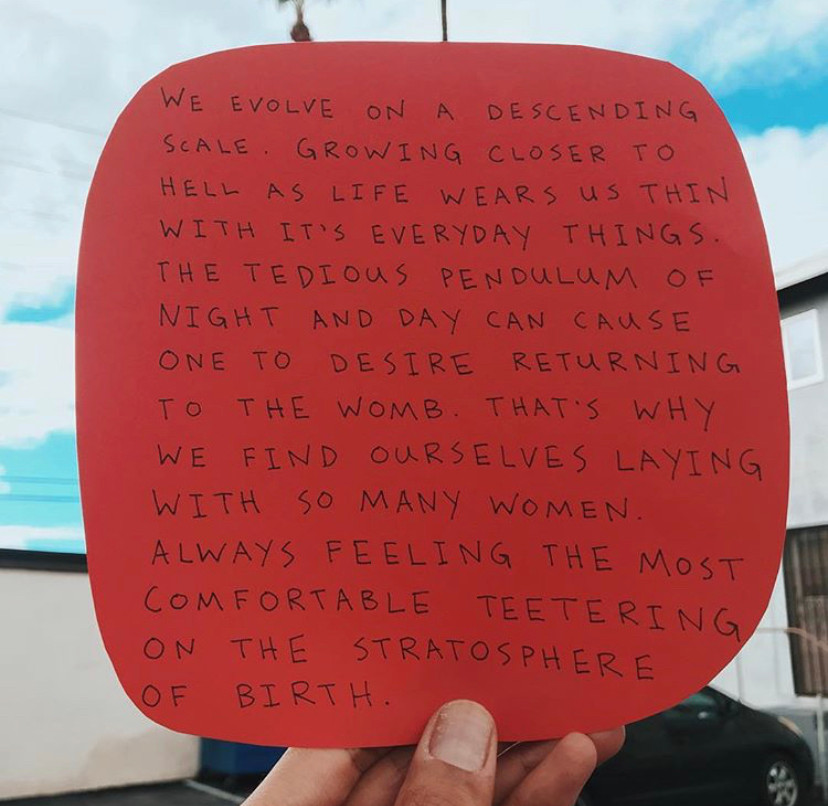 WE EVOLVE ON A DESCENDING
SCALE. GROWING CLOSER TO
HELL AS LIFE WEARS US THIN
WITH IT'S EVERYDAY THINGS.
THE TEDIOUS PENDULUM OF
NIGHT AND DAY CAN CAUSE
ONE TO DESIRE RETURNING
TO THE WOMB. THAT'S WHY
WE FIND OURSELVES LAYING
WITH SO MANY WOMEN.
ALWAYS FEELING THE MOST
COMFORTABLE TEETERING
ON THE STRATOSPHERE
OF BIRTH.